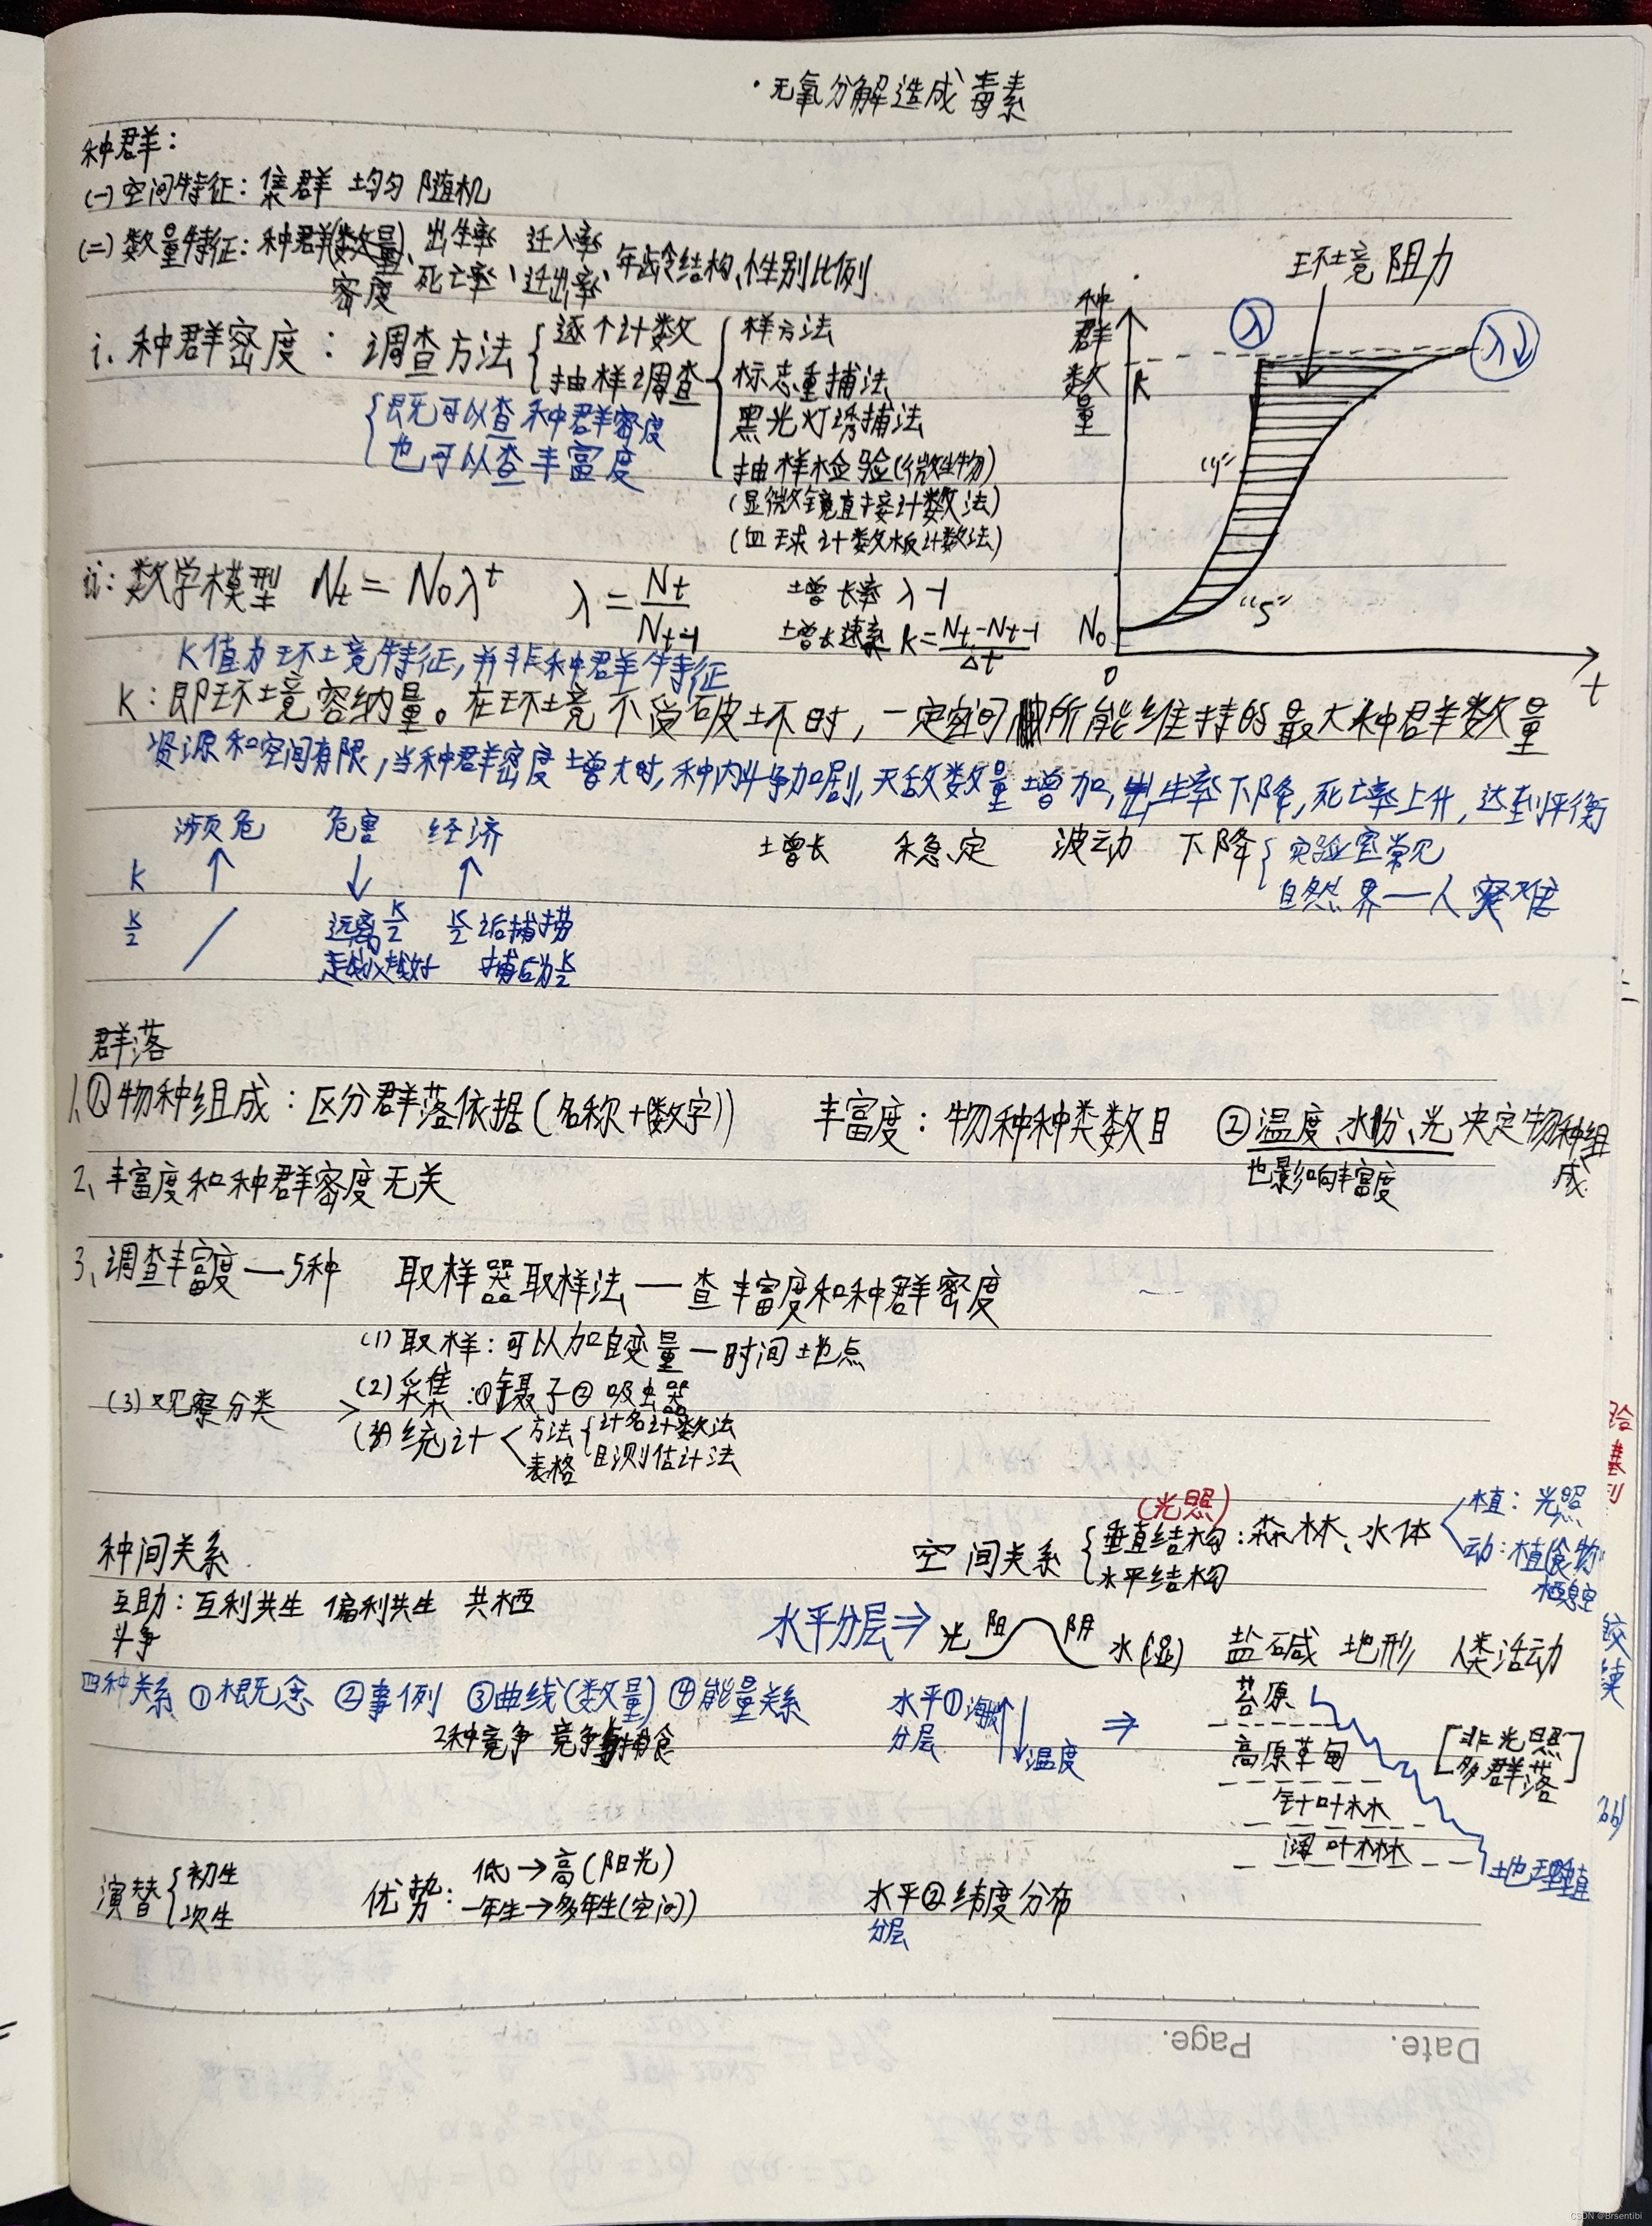 ·无氧分解造成毒素
种群：
(一)空间特征：集群 均匀 随机
(二)数量特征：种群(数量)、出生率 迁入率
密度 死亡率、迁出率、年龄结构、性别比例
i. 种群密度：调查方法 逐个计数
抽样调查
样方法
标志重捕法
黑光灯诱捕法
抽样检验(微生物)
(显微镜直接计数法)
(血球计数板计数法)
既可以查种群密度
也可以查丰富度
环境阻力
种群数量
λ
λ↓
K
"J"
"S"
N₀
0
t
ii：数学模型 Nt=N₀λ^t λ=Nt/Nt-1
增长率 λ-1
增长速率 k=Nt-Nt-1/Δt
K值为环境特征，并非种群特征
K：即环境容纳量。在环境不受破坏时，一定空间所能维持的最大种群数量
资源和空间有限，当种群密度增大时，种内斗争加剧，天敌数量增加，出生率下降，死亡率上升，达到平衡
濒危 危害 经济
增长 稳定 波动 下降
实验室常见
自然界—人 突难
K ↑ ↓ ↑
K/2 / 远离K/2 K/2后捕捞
越快越好 捕后为K/2
群落
1、①物种组成：区分群落依据(名称+数字) 丰富度：物种种类数目 ②温度、水份、光决定物种组成
也影响丰富度
2、丰富度和种群密度无关
3、调查丰富度—5种 取样器取样法—查丰富度和种群密度
(1)取样：可以加自变量—时间地点
(2)采集：①镊子②吸虫器
(3)观察分类
统计 方法 计名计数法
目测估计法
表格
种间关系
互助：互利共生 偏利共生 共栖
斗争
四种关系 ①概念 ②事例 ③曲线(数量) ④能量关系
2种竞争 竞争与捕食
空间关系
(光照)
垂直结构：森林、水体
水平结构
植：光照
动：植食物
栖息空
水平分层⇒ 光 阳 阴 水(湿) 盐碱 地形 人类活动
水平①海拔↑↓温度 ⇒
分层
苔原
高原草甸
针叶林
阔叶林
[非光照
多群落]
演替 初生
次生
优势：低→高(阳光)
一年生→多年生(空间)
水平②纬度分布
分层
Date.
Page.
CSDN @Brsentibi